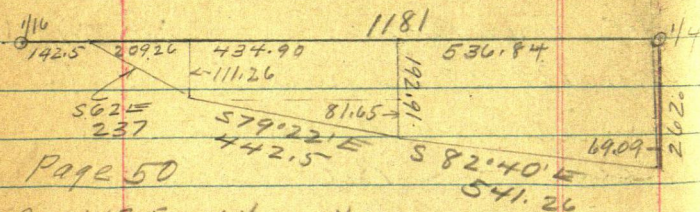 1181
1/16
1/4
142.5 209.26 434.90 536.84
111.26
192.91
S 62 E
237
81.65
S 79° 22' E
442.5
S 82° 40' E
541.26
69.09
262.
Page 50